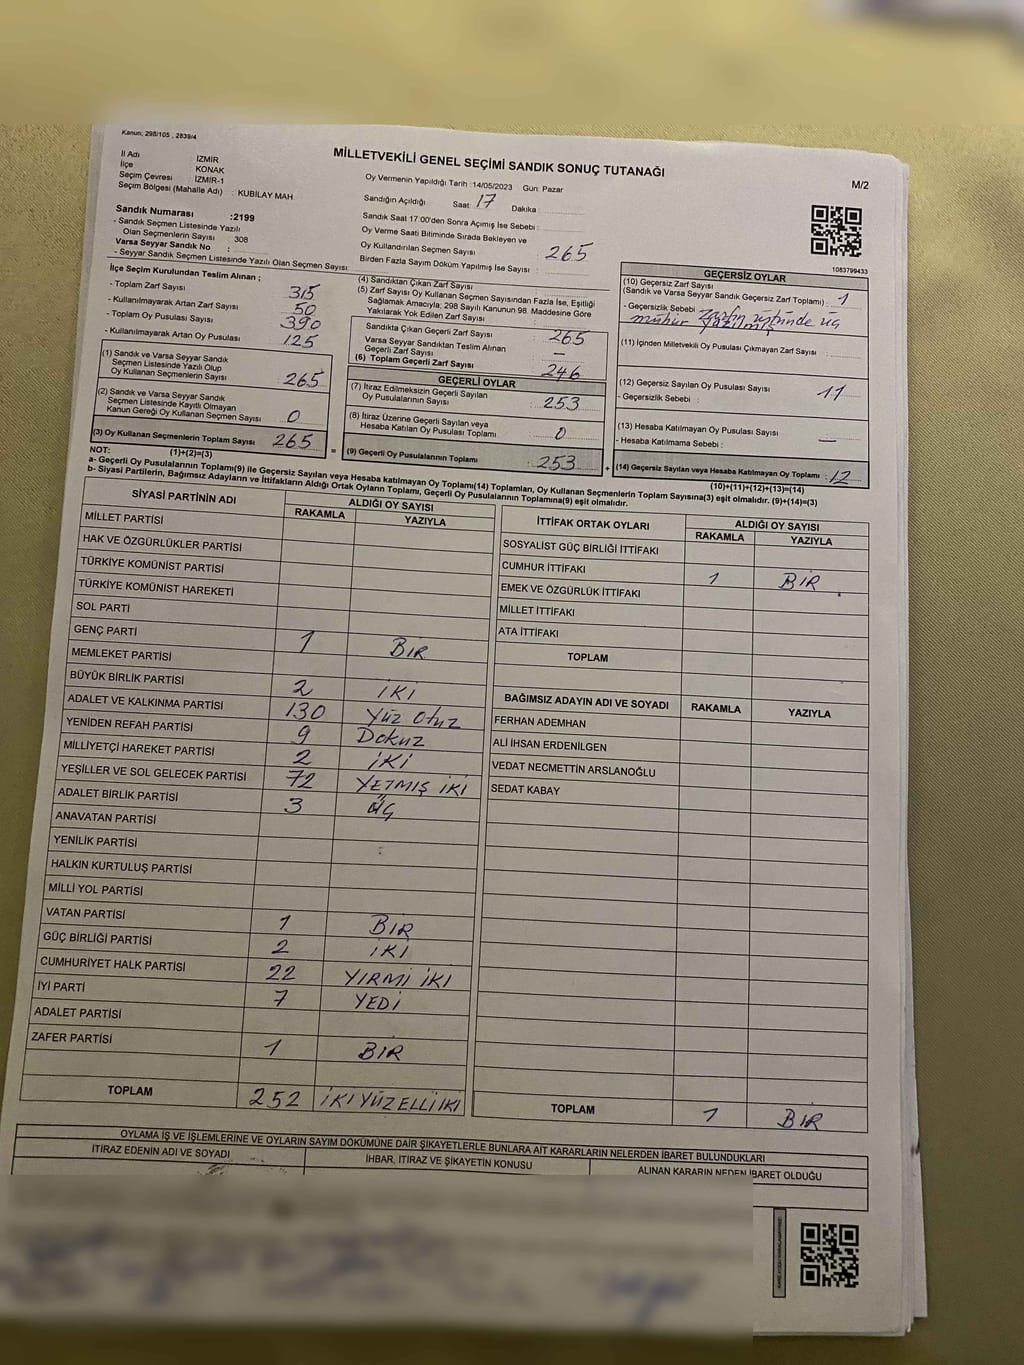 Kanun; 298/105 , 2839/4
MİLLETVEKİLİ GENEL SEÇİMİ SANDIK SONUÇ TUTANAĞI
M/2
İl Adı : İZMİR
İlçe : KONAK
Seçim Çevresi : İZMİR-1
Seçim Bölgesi (Mahalle Adı) : KUBİLAY MAH
Oy Vermenin Yapıldığı Tarih :14/05/2023 Gün: Pazar
Sandığın Açıldığı Saat: 17 Dakika :
Sandık Saat 17:00'den Sonra Açımış İse Sebebi :
Oy Verme Saati Bitiminde Sırada Bekleyen ve
Oy Kullandırılan Seçmen Sayısı : 265
Birden Fazla Sayım Döküm Yapılmış İse Sayısı :
Sandık Numarası :2199
- Sandık Seçmen Listesinde Yazılı
Olan Seçmenlerin Sayısı : 308
Varsa Seyyar Sandık No :
- Seyyar Sandık Seçmen Listesinde Yazılı Olan Seçmen Sayısı:
1083799433
İlçe Seçim Kurulundan Teslim Alınan ;
- Toplam Zarf Sayısı : 315
- Kullanılmayarak Artan Zarf Sayısı : 50
- Toplam Oy Pusulası Sayısı : 390
- Kullanılmayarak Artan Oy Pusulası : 125
(1) Sandık ve Varsa Seyyar Sandık
Seçmen Listesinde Yazılı Olup
Oy Kullanan Seçmenlerin Sayısı : 265
(2) Sandık ve Varsa Seyyar Sandık
Seçmen Listesinde Kayıtlı Olmayan
Kanun Gereği Oy Kullanan Seçmen Sayısı : 0
(3) Oy Kullanan Seçmenlerin Toplam Sayısı : 265
(4) Sandıktan Çıkan Zarf Sayısı :
(5) Zarf Sayısı Oy Kullanan Seçmen Sayısından Fazla İse, Eşitliği
Sağlamak Amacıyla; 298 Sayılı Kanunun 98. Maddesine Göre
Yakılarak Yok Edilen Zarf Sayısı :
Sandıkta Çıkan Geçerli Zarf Sayısı : 265
Varsa Seyyar Sandıktan Teslim Alınan
Geçerli Zarf Sayısı : —
(6) Toplam Geçerli Zarf Sayısı : 246
GEÇERLİ OYLAR
(7) İtiraz Edilmeksizin Geçerli Sayılan
Oy Pusulalarının Sayısı : 253
(8) İtiraz Üzerine Geçerli Sayılan veya
Hesaba Katılan Oy Pusulası Toplamı : 0
(9) Geçerli Oy Pusulalarının Toplamı : 253
GEÇERSİZ OYLAR
(10) Geçersiz Zarf Sayısı
(Sandık ve Varsa Seyyar Sandık Geçersiz Zarf Toplamı) : 1
- Geçersizlik Sebebi : Zarfın üstünde üç
mühür
(11) İçinden Milletvekili Oy Pusulası Çıkmayan Zarf Sayısı :
(12) Geçersiz Sayılan Oy Pusulası Sayısı : 11
- Geçersizlik Sebebi :
(13) Hesaba Katılmayan Oy Pusulası Sayısı : —
- Hesaba Katılmama Sebebi :
(14) Geçersiz Sayılan veya Hesaba Katılmayan Oy Toplamı : 12
NOT: (1)+(2)=(3)
(10)+(11)+(12)+(13)=(14)
a- Geçerli Oy Pusulalarının Toplamı(9) ile Geçersiz Sayılan veya Hesaba katılmayan Oy Toplamı(14) Toplamları, Oy Kullanan Seçmenlerin Toplam Sayısına(3) eşit olmalıdır. (9)+(14)=(3)
b- Siyasi Partilerin, Bağımsız Adayların ve İttifakların Aldığı Oy Sayıları, Ortak Oyların Toplamı, Geçerli Oy Pusulalarının Toplamına(9) eşit olmalıdır.
SİYASİ PARTİNİN ADI ALDIĞI OY SAYISI
RAKAMLA YAZIYLA
MİLLET PARTİSİ
HAK VE ÖZGÜRLÜKLER PARTİSİ
TÜRKİYE KOMÜNİST PARTİSİ
TÜRKİYE KOMÜNİST HAREKETİ
SOL PARTİ
GENÇ PARTİ 1 BİR
MEMLEKET PARTİSİ
BÜYÜK BİRLİK PARTİSİ 2 İKİ
ADALET VE KALKINMA PARTİSİ 130 Yüz Otuz
YENİDEN REFAH PARTİSİ 9 Dokuz
MİLLİYETÇİ HAREKET PARTİSİ 2 İKİ
YEŞİLLER VE SOL GELECEK PARTİSİ 72 YETMİŞ İKİ
ADALET BİRLİK PARTİSİ 3 ÜÇ
ANAVATAN PARTİSİ
YENİLİK PARTİSİ
HALKIN KURTULUŞ PARTİSİ
MİLLİ YOL PARTİSİ
VATAN PARTİSİ 1 BIR
GÜÇ BİRLİĞİ PARTİSİ 2 İKİ
CUMHURİYET HALK PARTİSİ 22 YIRMİ İKİ
İYİ PARTİ 7 YEDİ
ADALET PARTİSİ
ZAFER PARTİSİ 1 BIR
TOPLAM 252 İKİ YÜZ ELLİ İKİ
İTTİFAK ORTAK OYLARI ALDIĞI OY SAYISI
RAKAMLA YAZIYLA
SOSYALİST GÜÇ BİRLİĞİ İTTİFAKI
CUMHUR İTTİFAKI 1 BIR
EMEK VE ÖZGÜRLÜK İTTİFAKI
MİLLET İTTİFAKI
ATA İTTİFAKI
TOPLAM
BAĞIMSIZ ADAYIN ADI VE SOYADI RAKAMLA YAZIYLA
FERHAN ADEMHAN
ALİ İHSAN ERDENİLGEN
VEDAT NECMETTİN ARSLANOĞLU
SEDAT KABAY
TOPLAM 1 BIR
OYLAMA İŞ VE İŞLEMLERİNE VE OYLARIN SAYIM DÖKÜMÜNE DAİR ŞİKAYETLERLE BUNLARA AİT KARARLARIN NELERDEN İBARET BULUNDUKLARI
İTİRAZ EDENİN ADI VE SOYADI İHBAR, İTİRAZ VE ŞİKAYETİN KONUSU ALINAN KARARIN NEDEN İBARET OLDUĞU